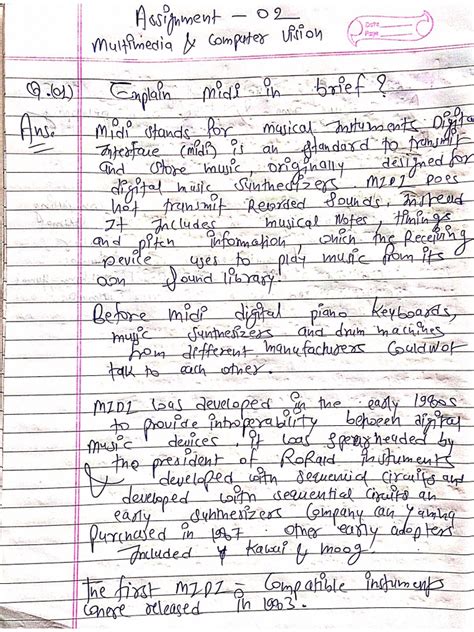 Assignment - 02
Multimedia & Computer vision
Date
Page
Q.01) Explain midi in brief?
Ans. Midi stands for musical instuments Digital
Interface (midi) is an standard to transmit
and store music, originally designed for
digital music synthesizers. MIDI Does
not transmit Recorded sounds, Instead
It Includes musical Notes, timings
and pitch information, which the Receiving
Device uses to play music from its
own sound library.
Before midi digital piano keyboards,
music synthesizers and drum machines
from different manufacturers could not
talk to each other.
MIDI was developed in the early 1980s
to provide introperability between digital
music devices. it was spearheaded by
the president of instuments
developed with sequencial circuits and
developed with sequential circuits an
early synthesizers Company
Purchased in other early adopters
Included Kawai & moog.
The first MIDI - Compatible instuments
where released in 1983.